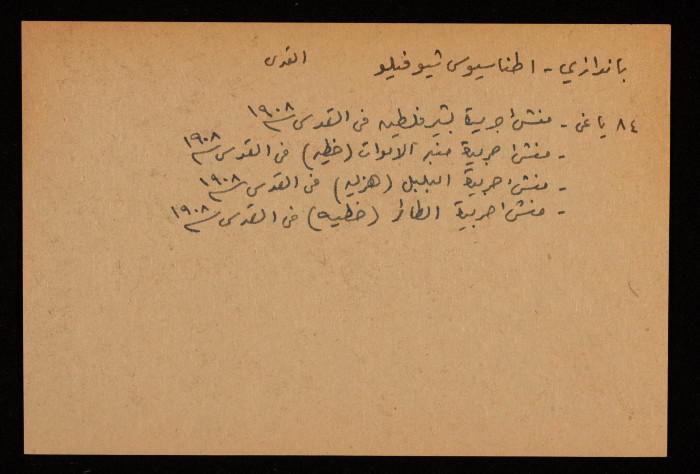 باندازي - اطناسيوس ثيوفيلو القدس
٨٤ ياغي - منشئ جريدة بشير فلسطين في القدس سنة ١٩٠٨
- منشئ جريدة منبر الاموات (خطية) في القدس سنة ١٩٠٨
- منشئ جريدة البلبل (هزلية) في القدس سنة ١٩٠٨
- منشئ جريدة الطائر (خطية) في القدس سنة ١٩٠٨